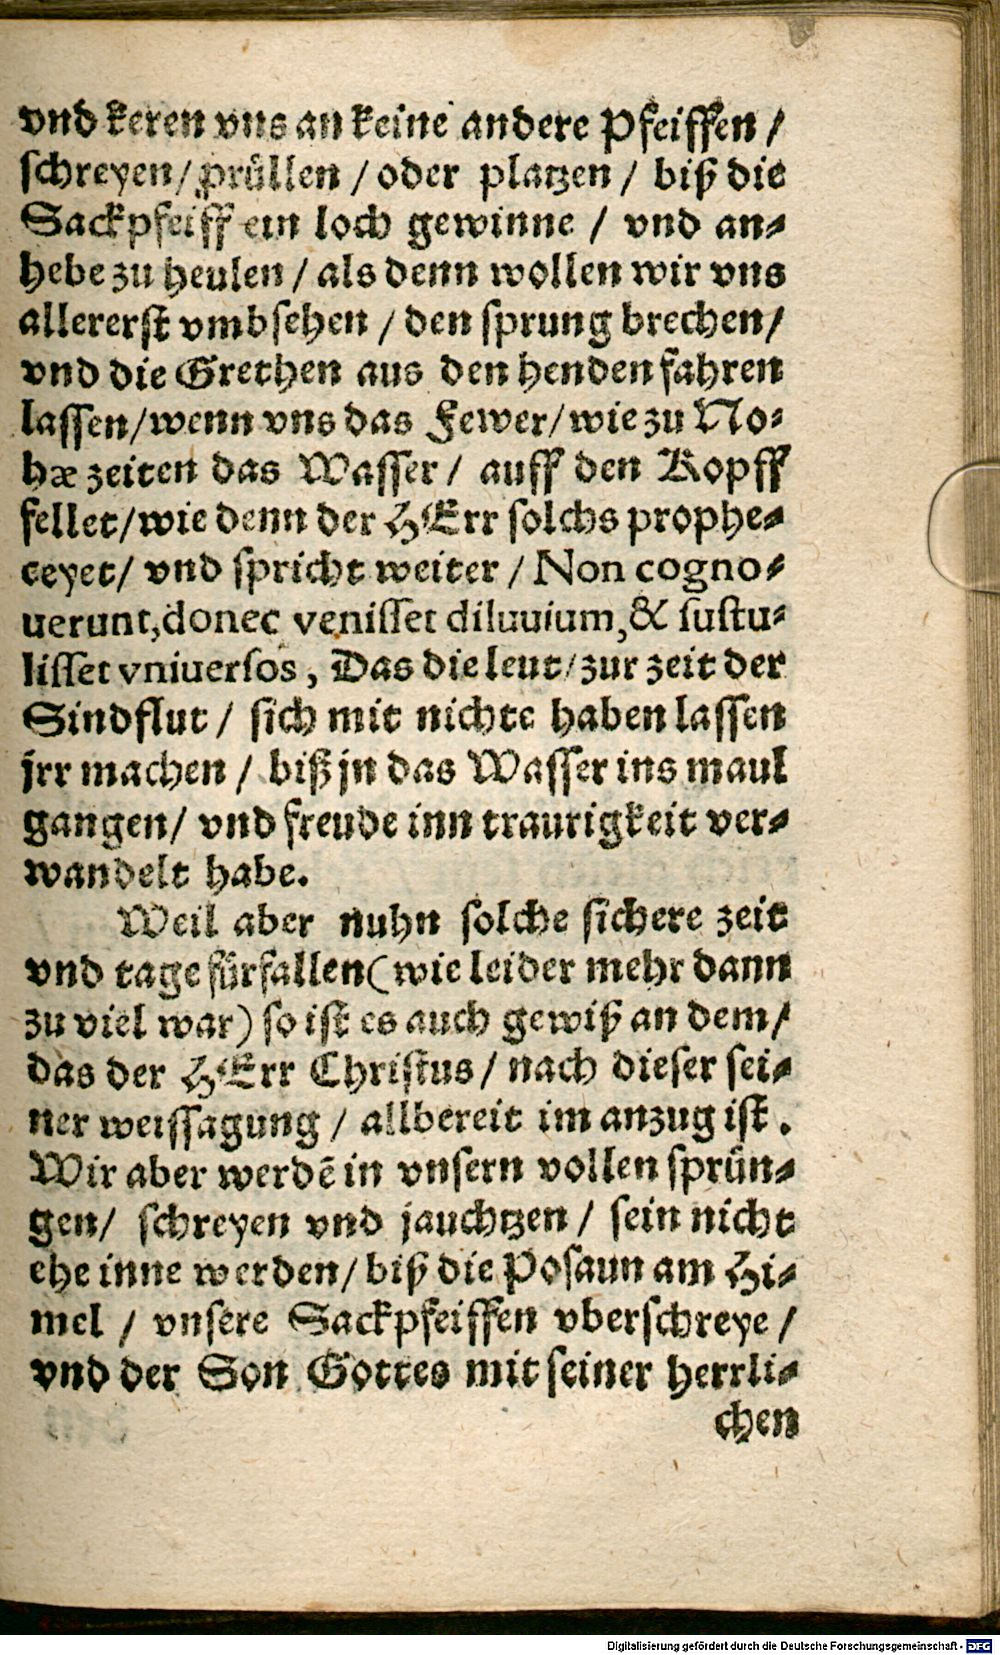 vnd keren vns an keine andere Pfeiffen /
schreyen / prüllen / oder platzen / biß die
Sackpfeiff ein loch gewinne / vnd an⸗
hebe zu heulen / als denn wollen wir vns
allererst vmbsehen / den sprung brechen /
vnd die Grethen aus den henden fahren
lassen / wenn vns das Fewer / wie zu No⸗
hæ zeiten das Wasser / auff den Kopff
fellet / wie denn der HErr solchs prophe⸗
ceyet / vnd spricht weiter / Non cogno⸗
uerunt, donec venisset diluuium, & sustu⸗
lisset vniuersos, Das die leut / zur zeit der
Sindflut / sich mit nichte haben lassen
jrr machen / biß jn das Wasser ins maul
gangen / vnd freude inn traurigkeit ver⸗
wandelt habe.
Weil aber nuhn solche sichere zeit
vnd tage fürfallen (wie leider mehr dann
zu viel war) so ist es auch gewiß an dem /
das der HErr Christus / nach dieser sei⸗
ner weissagung / allbereit im anzug ist.
Wir aber werdē in vnsern vollen sprün⸗
gen / schreyen vnd jauchtzen / sein nicht
ehe inne werden / biß die Posaun am Hi⸗
mel / vnsere Sackpfeiffen vberschreye /
vnd der Son Gottes mit seiner herrli⸗
chen
Digitalisierung gefördert durch die Deutsche Forschungsgemeinschaft - DFG